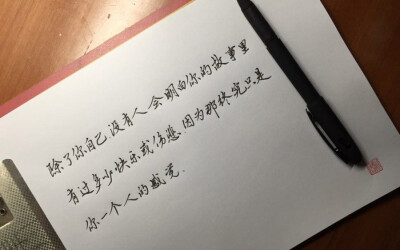 除了你自己,没有人会明白你的故事里
有过多少快乐或伤悲.因为那终究只是
你一个人的感觉.